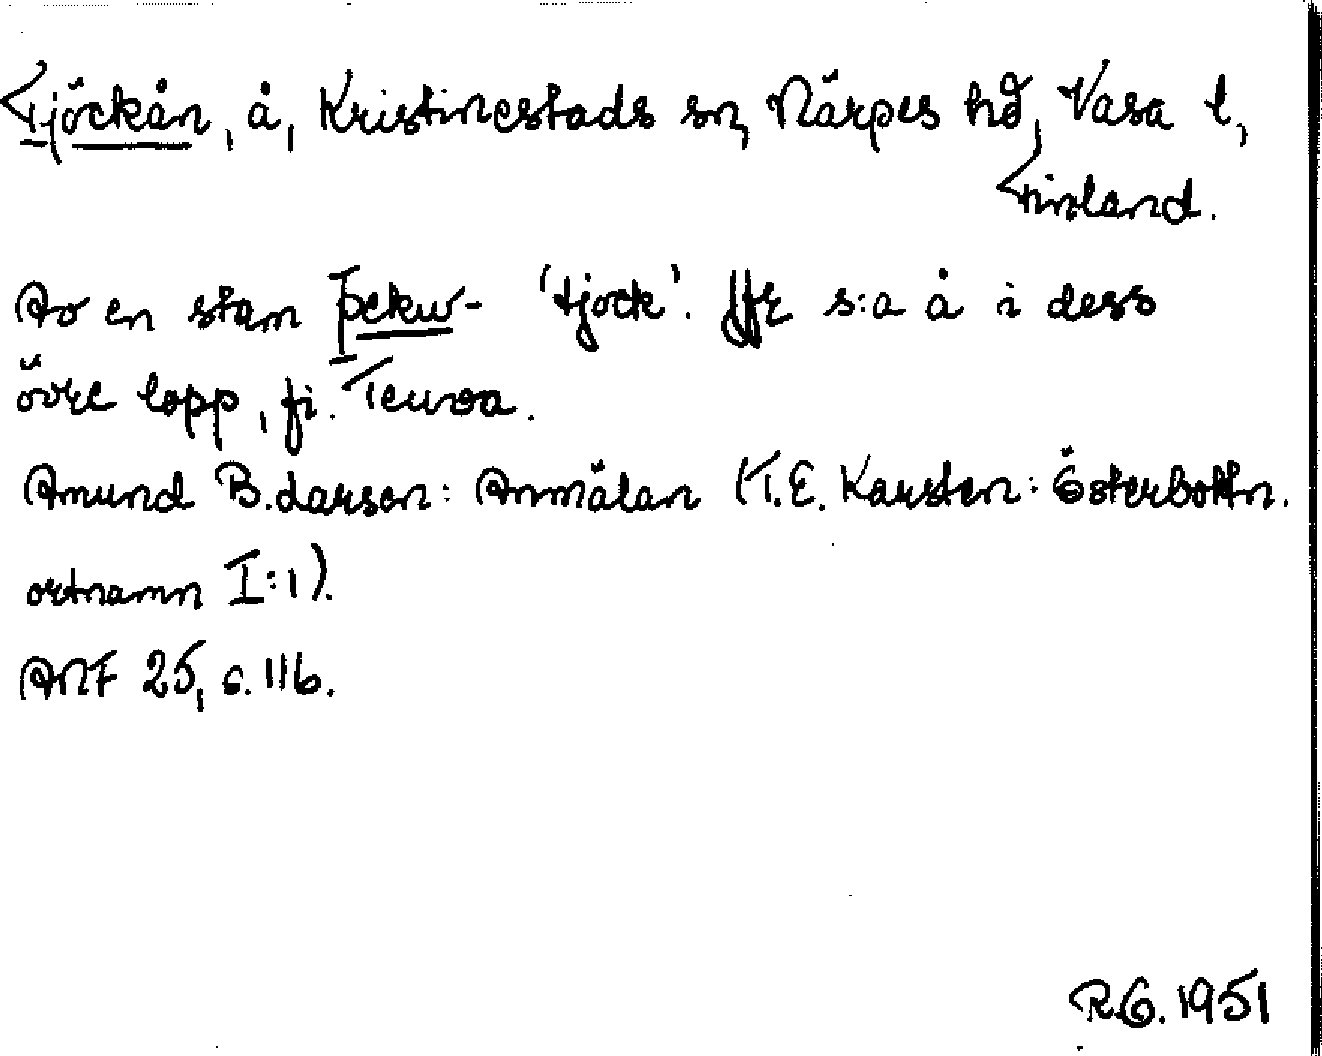 Tjöckån, å, Kristinestads sn, Närpes hd, Vasa l,
Finland.
Av en stam þekw- 'tjock'. Jfr s:a å i dess
övre lopp, fi. Teuva.
Amund B. Larsen: Anmälan (T.E. Karsten: Österbottn.
ortnamn I:1).
ANF 25, s. 116.
R.G. 1951